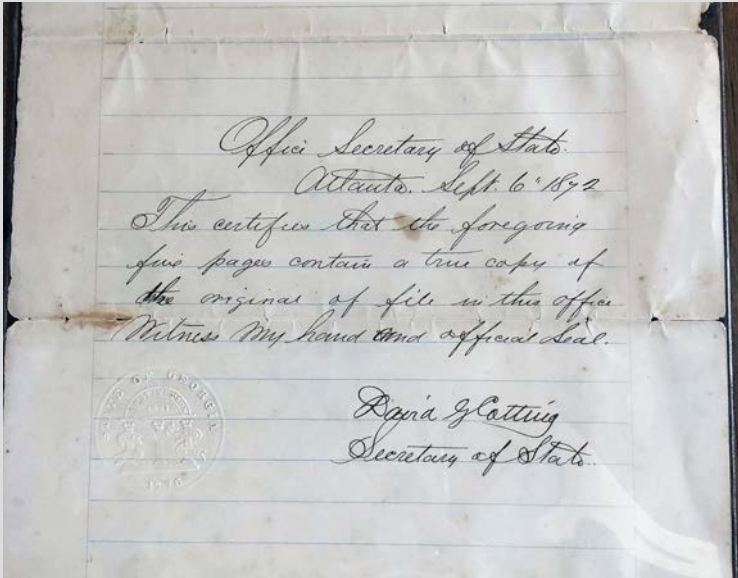 Office Secretary of State.
Atlanta. Sept. 6" 1872
This certifies that the foregoing
five pages contain a true copy of
the original of file in this office
Witness My hand and official Seal.
David G Cotting
Secretary of State.
STATE OF GEORGIA
1776